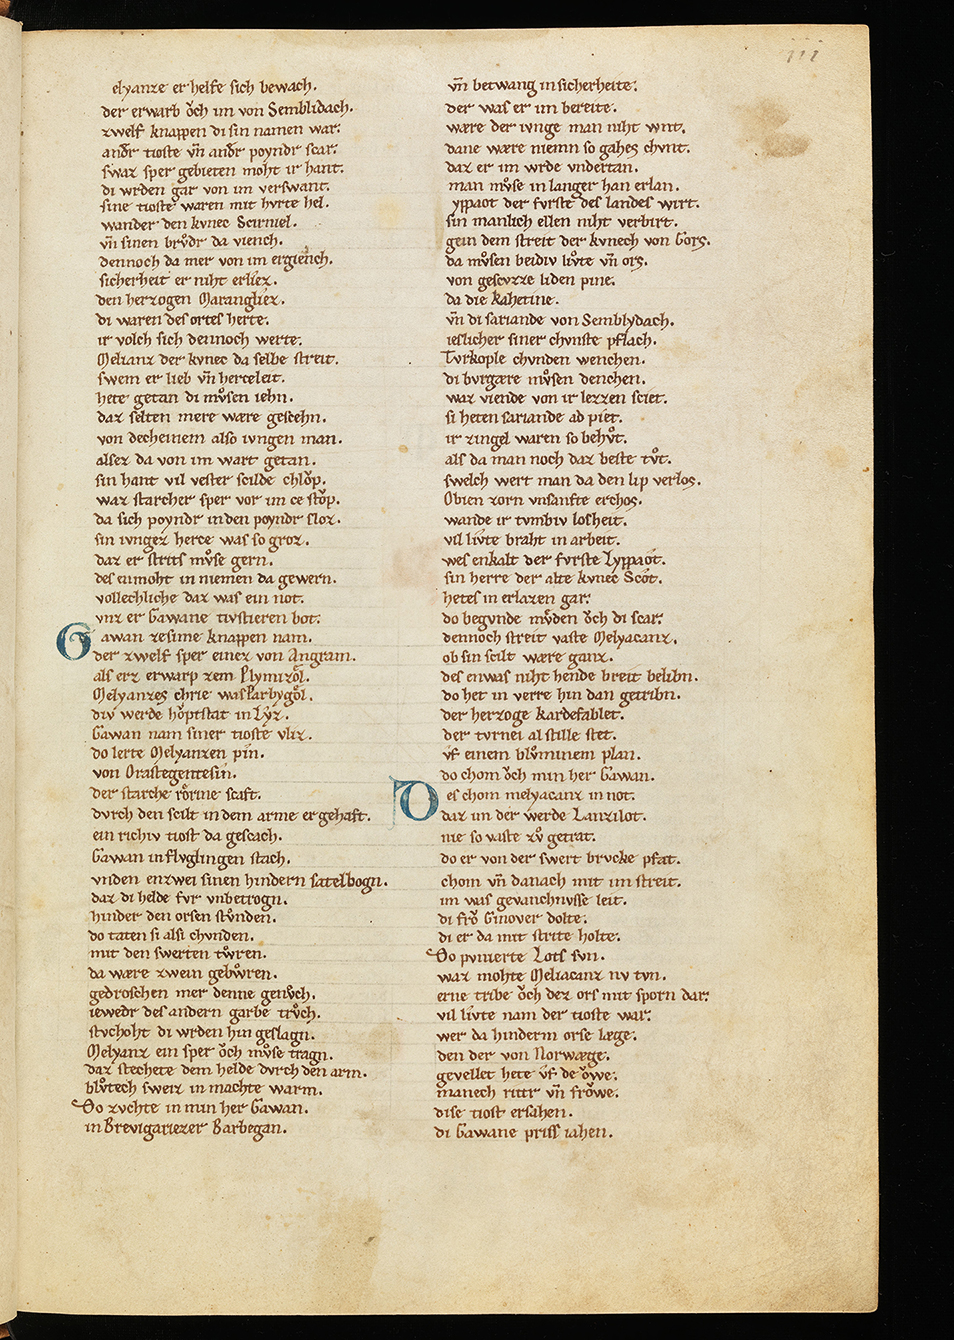 111
elyanze er helfe sich bewach.
der erwarb oͮch im von Semblidach.
zwelf knappen di sin namen war:
andͬ tioste vn̄ andͬ poyndr scar:
swaz sper gebieten moht ir hant.
di wrden gar von im verswant.
sine tioste waren mit hvrte hel.
wander den kvnec Scirniel.
vn̄ sinen brvͦdr da viench.
dennoch da mer von im ergiench.
sicherheit er niht erliez.
den herzogen Marangliez.
di waren des ortes herte.
ir volch sich dennoch werte.
Melianz der kvnec da selbe streit.
swem er lieb vn̄ herceleit.
hete getan di mvͦsen iehn.
daz selten mere wære gescehn.
von decheinem also ivngen man.
alsez da von im wart getan.
sin hant vil vester scilde chloͮp.
waz starcher sper vor im ce stoͮp.
da sich poyndr in den poyndr sloz.
sin ivngez herce was so groz.
daz er strits mvͦse gern.
des enmoht in niemen da gewern.
vollechliche daz was ein not.
vnz er Gawane tivstieren bot:
Gawan zesime knappen nam.
der zwelf sper einez von Angram.
als erz erwarp zem Plymizoͤl.
Melyanzes chrie was Barbygoͤl.
div werde hoͮptstat in Lyz.
Gawan nam siner tioste vliz.
do lerte Melyanzen pin.
von Orastegentesin.
der starche roͤrine scaft.
dvrch den scilt in dem arme er gehaft.
ein richiv tiost da gescach.
Gawan in flvglingen stach.
vnden enzwei sinen hindern satelbogn.
daz di helde fvr vnbetrogn.
hinder den orsen stvͦnden.
do taten si alsi chvnden.
mit den swerten tvͦren.
da wære zwein gebvͦren.
gedroschen mer denne genvͦch.
iewedr des andern garbe trvͦch.
stvchoht di wrden hin geslagn.
Melyanz ein sper oͮch mvͦse tragn.
daz stechete dem helde dvrch den arm.
blvͦtech sweiz in machte warm.
Do zvchte in min her Gawan.
in Brevigariezer Barbegan.
vn̄ betwang in sicherheite:
der was er im bereite.
wære der ivnge man niht wnt.
dane wære niemn so gahes chvnt.
daz er im wrde vndertan.
man mvͦse in langer han erlan.
yppaot der fvrste des landes wirt.
sin manlich ellen niht verbirt.
gein dem streit der kvnech von Gors.
da mvͦsen beidiv livͦte vn̄ ors.
von gescvzze liden pine.
da die kahetine.
vn̄ di sariande von Semblydach.
ieslicher siner chvnste pflach.
Tvrkople chvnden wenchen.
di bvrgære mvͦsen denchen.
waz viende von ir lezzen sciet.
si heten sariande ad piet.
ir zingel waren so behvͦt.
als da man noch daz beste tvͦt.
swelch wert man da den lip verlos.
Obien zorn vnsanfte erchos.
wande ir tvmbiv losheit.
vil livte braht in arbeit.
wes enkalt der fvrste Lyppaot.
sin herre der alte kvnec Scot.
hetes in erlazen gar:
do begvnde mvͦden oͮch di scar:
dennoch streit vaste Melyacanz.
ob sin scilt wære ganz.
des enwas niht hende breit belibn.
do het in verre hin dan getribn.
der herzoge Kardefablet.
der tvrnei al stille stet.
vf einem blvͦminem plan.
do chom oͮch min her Gawan.
Des chom melyacanz in not.
daz im der werde Lanzilot.
nie so vaste zvͦ getrat.
do er von der swert brvcke pfat.
chom vn̄ danach mit im streit.
im was gevanchnvsse leit.
di froͮ Ginover dolte.
di er da mit strite holte.
Do pvnierte Lots svn.
waz mohte Meliacanz nv tvn.
erne tribe oͮch dez ors mit sporn dar:
vil livte nam der tioste war:
wer da hinderm orse læge.
den der von Norwæge.
gevellet hete vf de oͮwe.
manech rittr vn̄ froͮwe.
dise tiost ersahen.
di Gawane priss iahen.